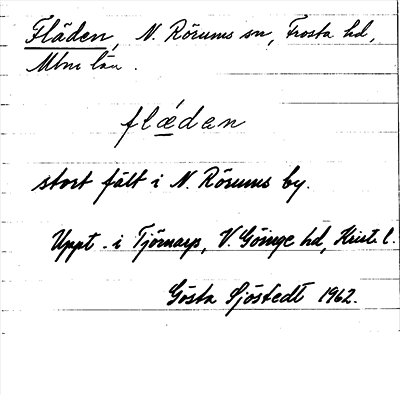 Fläden, N. Rörums sn, Frosta hd,
Mlm län.
flǽdan
stort fält i N. Rörums by.
Uppt. i Tjörnarp, V. Göinge hd, Krist. l.
Gösta Sjöstedt 1962.